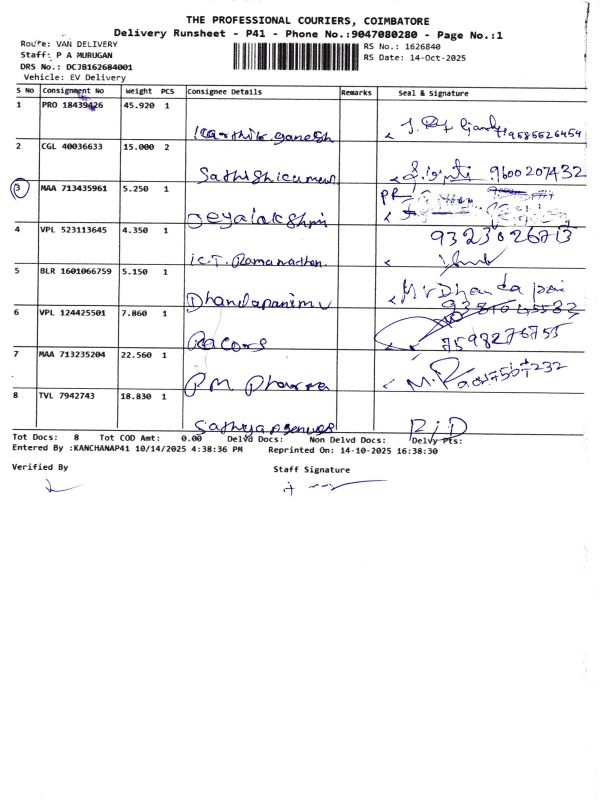 THE PROFESSIONAL COURIERS, COIMBATORE
Delivery Runsheet - P41 - Phone No.:9047080280 - Page No.:1
Route: VAN DELIVERY
RS No.: 1626840
Staff: P A MURUGAN
RS Date: 14-Oct-2025
DRS No.: DCJB162684001
Vehicle: EV Delivery
S No Consignment No Weight PCS Consignee Details Remarks Seal & Signature
1 PRO 18439426 45.920 1 Karthik ganesh
2 CGL 40036633 15.000 2 Sathishkumar 9600207432
3 MAA 713435961 5.250 1 Jeyalakshmi
4 VPL 523113645 4.350 1 K.T. Ramanathan 9323026713
5 BLR 1601066759 5.150 1 Dhandapani MV Mr Dhandapani
6 VPL 124425501 7.860 1 7598276755
7 MAA 713235204 22.560 1 PM Pharma
8 TVL 7942743 18.830 1
Tot Docs: 8 Tot COD Amt: 0.00 Delvd Docs: Non Delvd Docs: Delvy Pts:
Entered By :KANCHANAP41 10/14/2025 4:38:36 PM Reprinted On: 14-10-2025 16:38:30
Verified By
Staff Signature